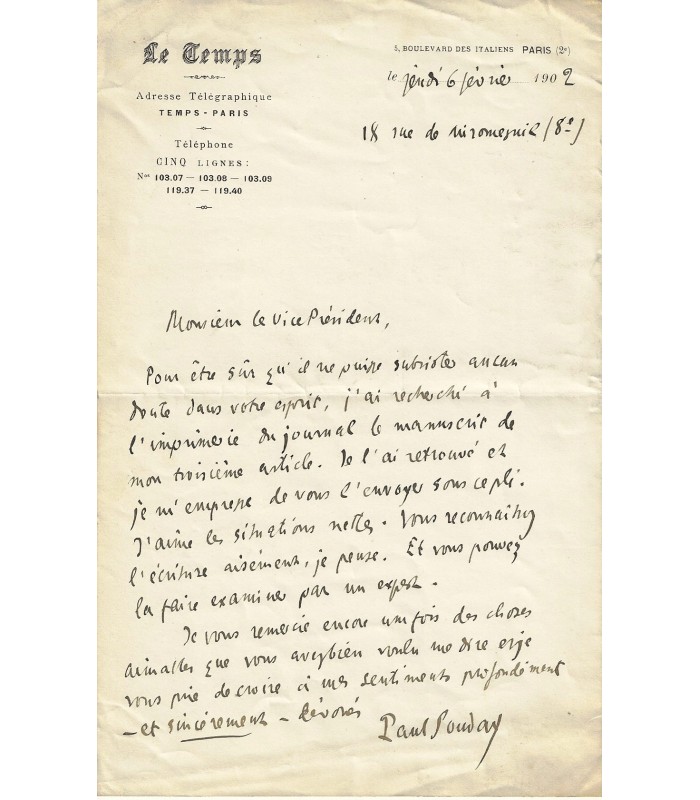 Le Temps
Adresse Télégraphique
TEMPS - PARIS
Téléphone
CINQ LIGNES :
Nos 103.07 — 103.08 — 103.09
119.37 — 119.40
5, BOULEVARD DES ITALIENS PARIS (2e)
le jeudi 6 février 1902
18 rue de Miromesnil (8e)
Monsieur le Vice Président,
Pour être sûr qu'il ne puisse subsister aucun
doute dans votre esprit, j'ai recherché à
l'imprimerie du journal le manuscrit de
mon troisième article. Je l'ai retrouvé et
je m'empresse de vous l'envoyer sous ce pli.
J'aime les situations nettes. Vous reconnaîtrez
l'écriture aisément, je pense. Et vous pouvez
la faire examiner par un expert.
Je vous remercie encore une fois des choses
aimables que vous avez bien voulu me dire et je
vous prie de croire à mes sentiments profondément
- et sincèrement - dévoués
Paul Souday